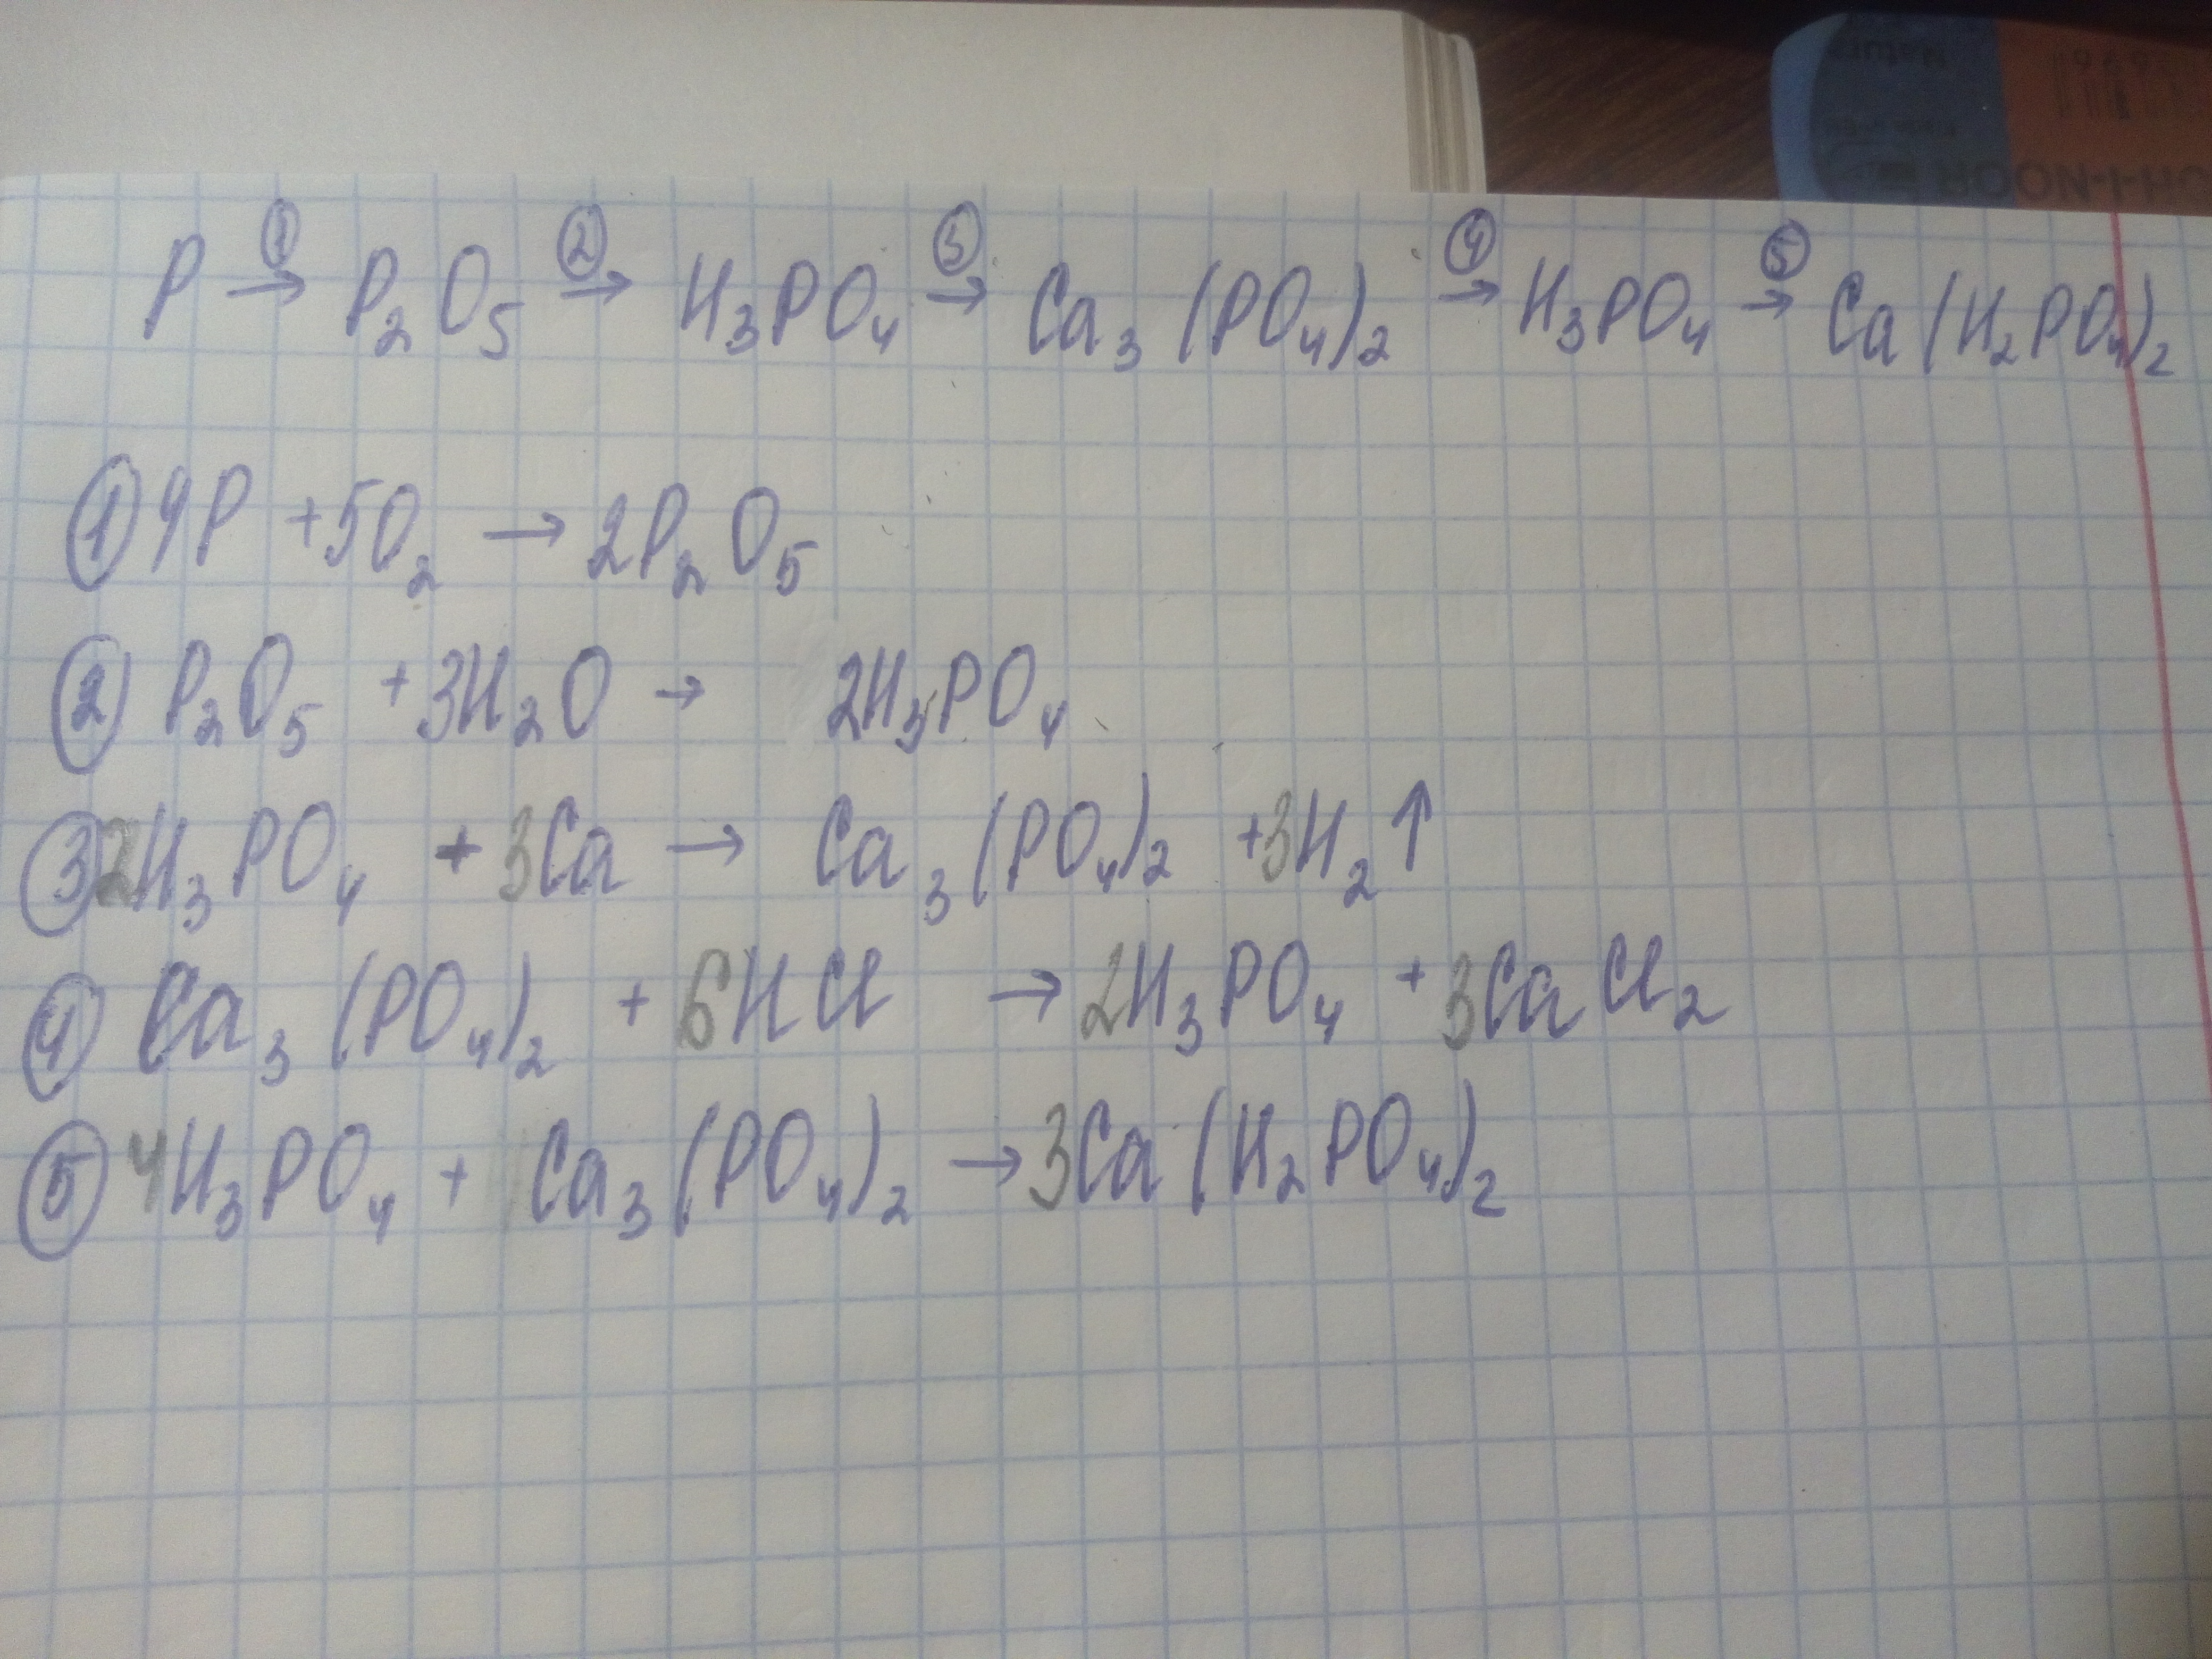 P ①→ P₂O₅ ②→ H₃PO₄ ③→ Ca₃(PO₄)₂ ④→ H₃PO₄ ⑤→ Ca(H₂PO₄)₂
① 4P + 5O₂ → 2P₂O₅
② P₂O₅ + 3H₂O → 2H₃PO₄
③ 2H₃PO₄ + 3Ca → Ca₃(PO₄)₂ + 3H₂↑
④ Ca₃(PO₄)₂ + 6HCl → 2H₃PO₄ + 3CaCl₂
⑤ 4H₃PO₄ + Ca₃(PO₄)₂ → 3Ca(H₂PO₄)₂